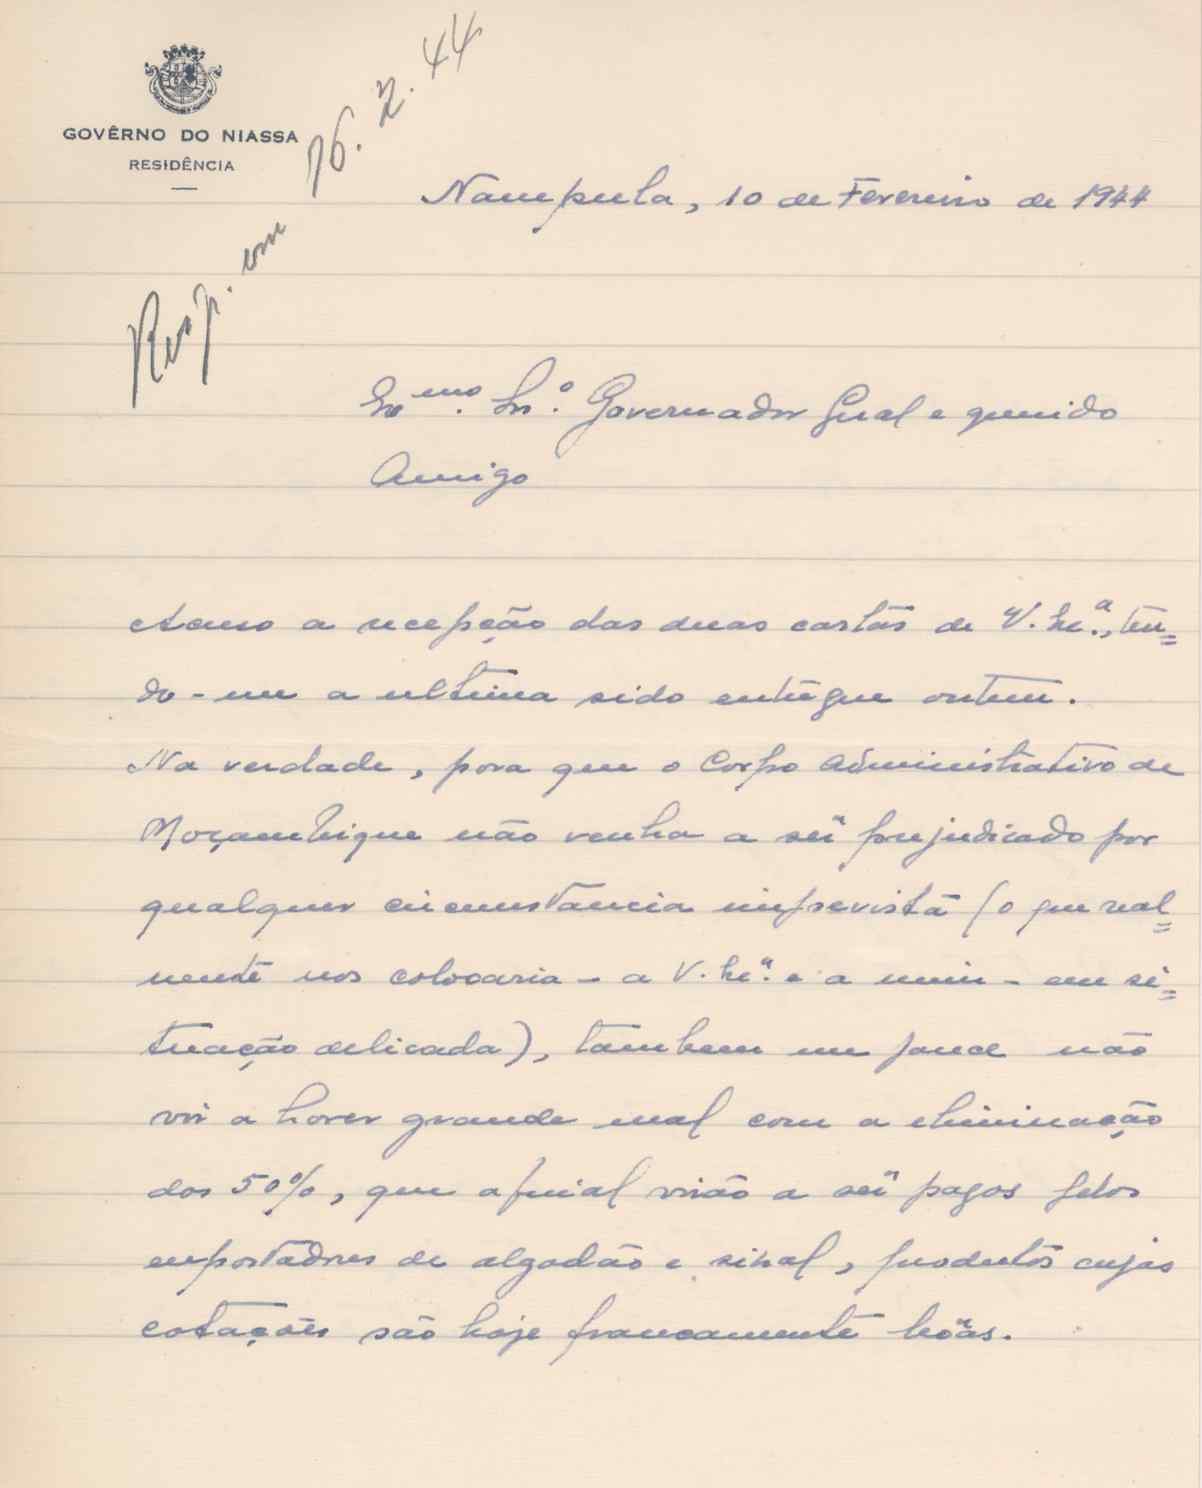 GOVÊRNO DO NIASSA
RESIDÊNCIA
Resp. em 16.2.44
Nampula, 10 de Fevereiro de 1944
Exmo. Snr.º Governador Geral e querido
Amigo
Acuso a recepção das duas cartas de V. Ex.ª, ten=
do-me a ultima sido entregue ontem.
Na verdade, para que o Corpo Administrativo de
Moçambique não venha a ser prejudicado por
qualquer circunstancia imprevista (o que real=
mente nos colocaria - a V. Ex.ª e a mim - em si=
tuação delicada), tambem me parece não
vir a haver grande mal com a eliminação
dos 50%, que afinal virão a ser pagos pelos
exportadores de algodão e sisal, produtos cujas
cotações são hoje francamente bôas.